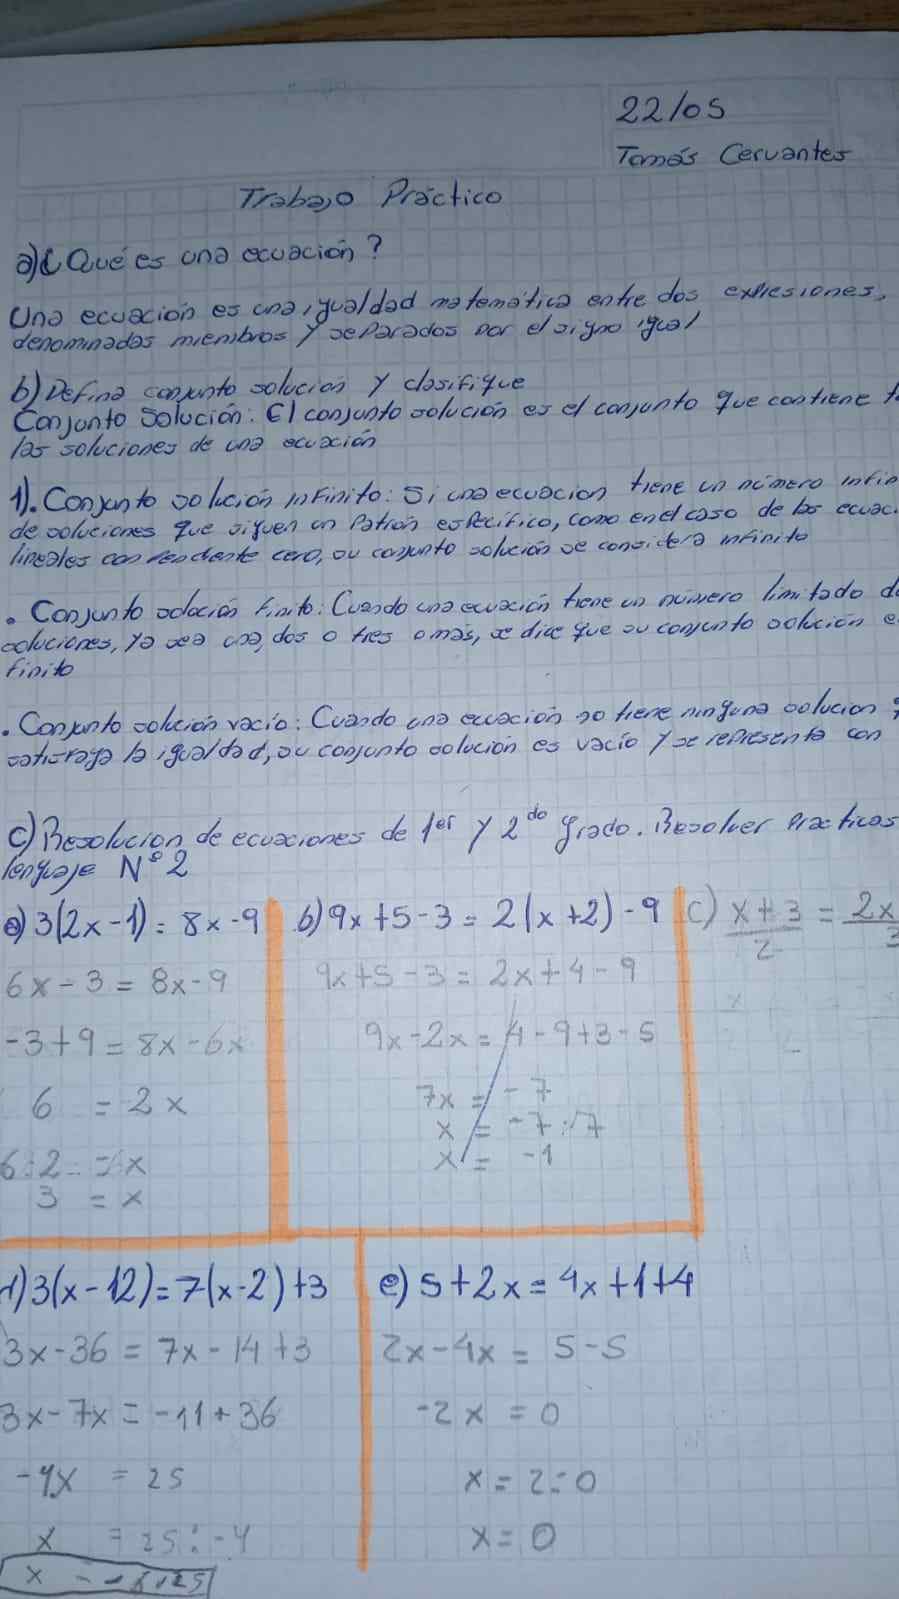 22/05
Tomás Cervantes
Trabajo Práctico
a)¿Qué es una ecuación?
Una ecuación es una igualdad matemática entre dos expresiones,
denominadas miembros y separados por el signo igual
b) Defina conjunto solución y clasifique
Conjunto Solución: El conjunto solución es el conjunto que contiene
las soluciones de una ecuación
1). Conjunto solución infinito: Si una ecuacion tiene un número
de soluciones que siguen un patrón específico, como en el caso de las
lineales con pendiente cero, su conjunto solución se considera infinito
• Conjunto solución finito: Cuando una ecuación tiene un número limitado
soluciones, ya sea una, dos o tres o más, se dice que su conjunto solución
finito
• Conjunto solución vacío: Cuando una ecuación no tiene ninguna solucion
satisfaga la igualdad, su conjunto solución es vacío y se representa con
c) Resolucion de ecuaciones de 1er y 2do grado. Resolver practicas
lenguaje N° 2
a) 3(2x-1) = 8x-9
6x - 3 = 8x-9
-3+9 = 8x-6x
6 = 2x
6:2 = x
3 = x
b) 9x+5-3 = 2(x+2)-9
9x+5-3 = 2x+4-9
9x-2x = 4-9+3-5
7x = -7
x = -7:7
x = -1
c) x+3 = 2x
2 3
d) 3(x-12) = 7(x-2)+3
3x-36 = 7x-14+3
3x-7x = -11+36
-4x = 25
x = 25:-4
e) 5+2x = 4x+1+4
2x-4x = 5-5
-2x = 0
x = 2:0
x = 0